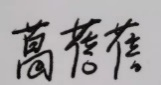 葛蓓蓓